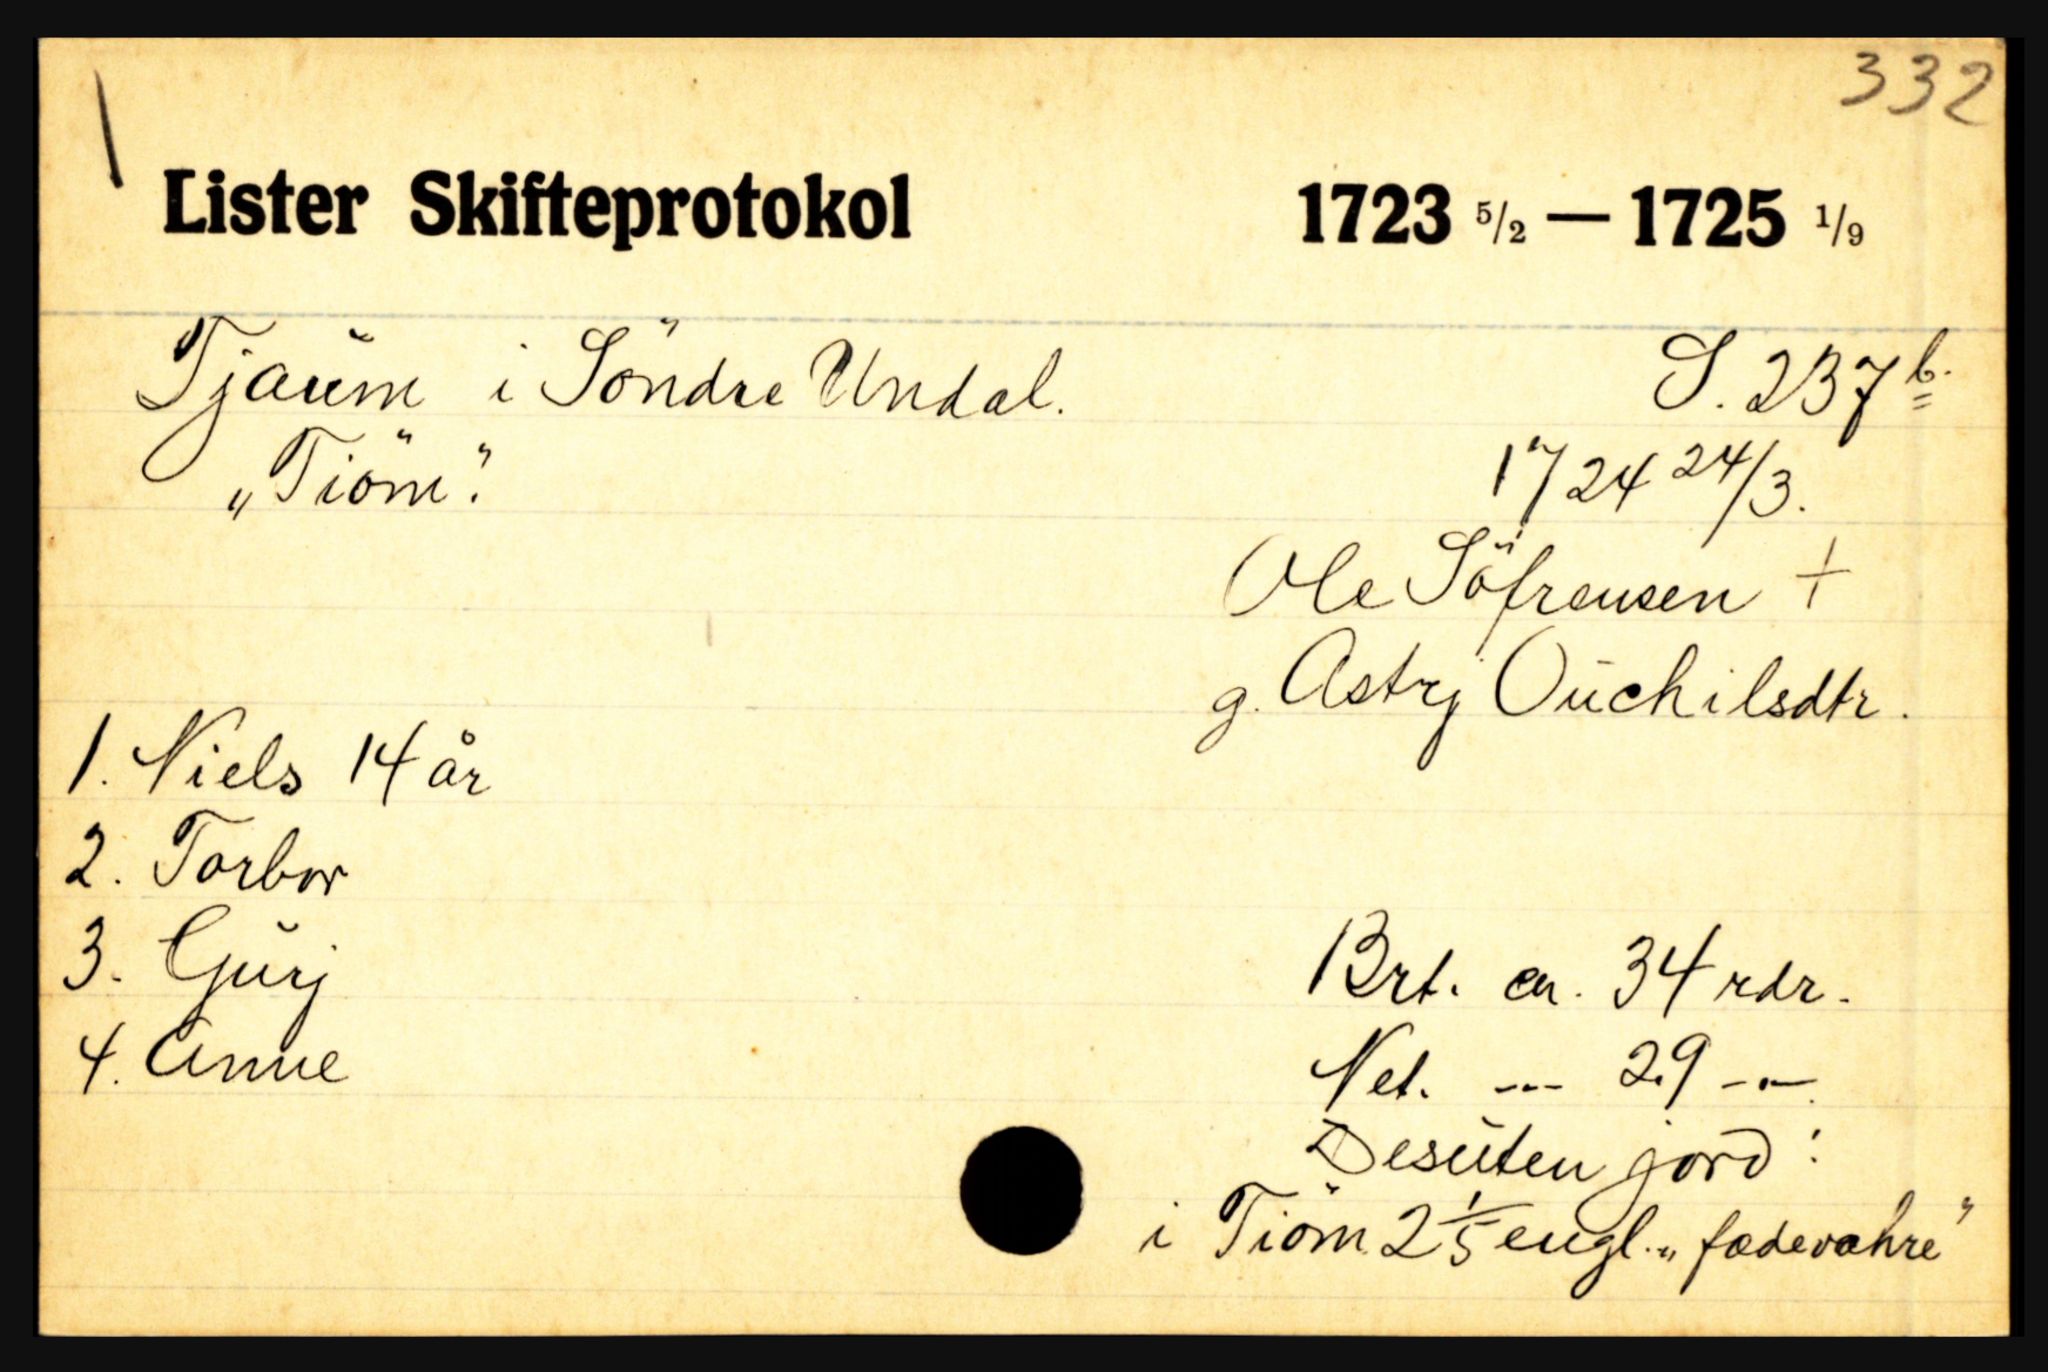 332
Lister Skifteprotokol 1723 5/2 — 1725 1/9
Tjaum i Söndre Undal. S. 237 b.
„Tiöm". 1724 24/3.
Ole Söfrensen +
g. Astrj Ouchilsdtr.
1. Niels 14 år
2. Torbor
3. Gurj
4. Anne
Brt. ca. 34 rdr.
Net. -"- 29 -"-
Desuten jord:
i Tiöm 2 1/5 engl. „fædevahre"